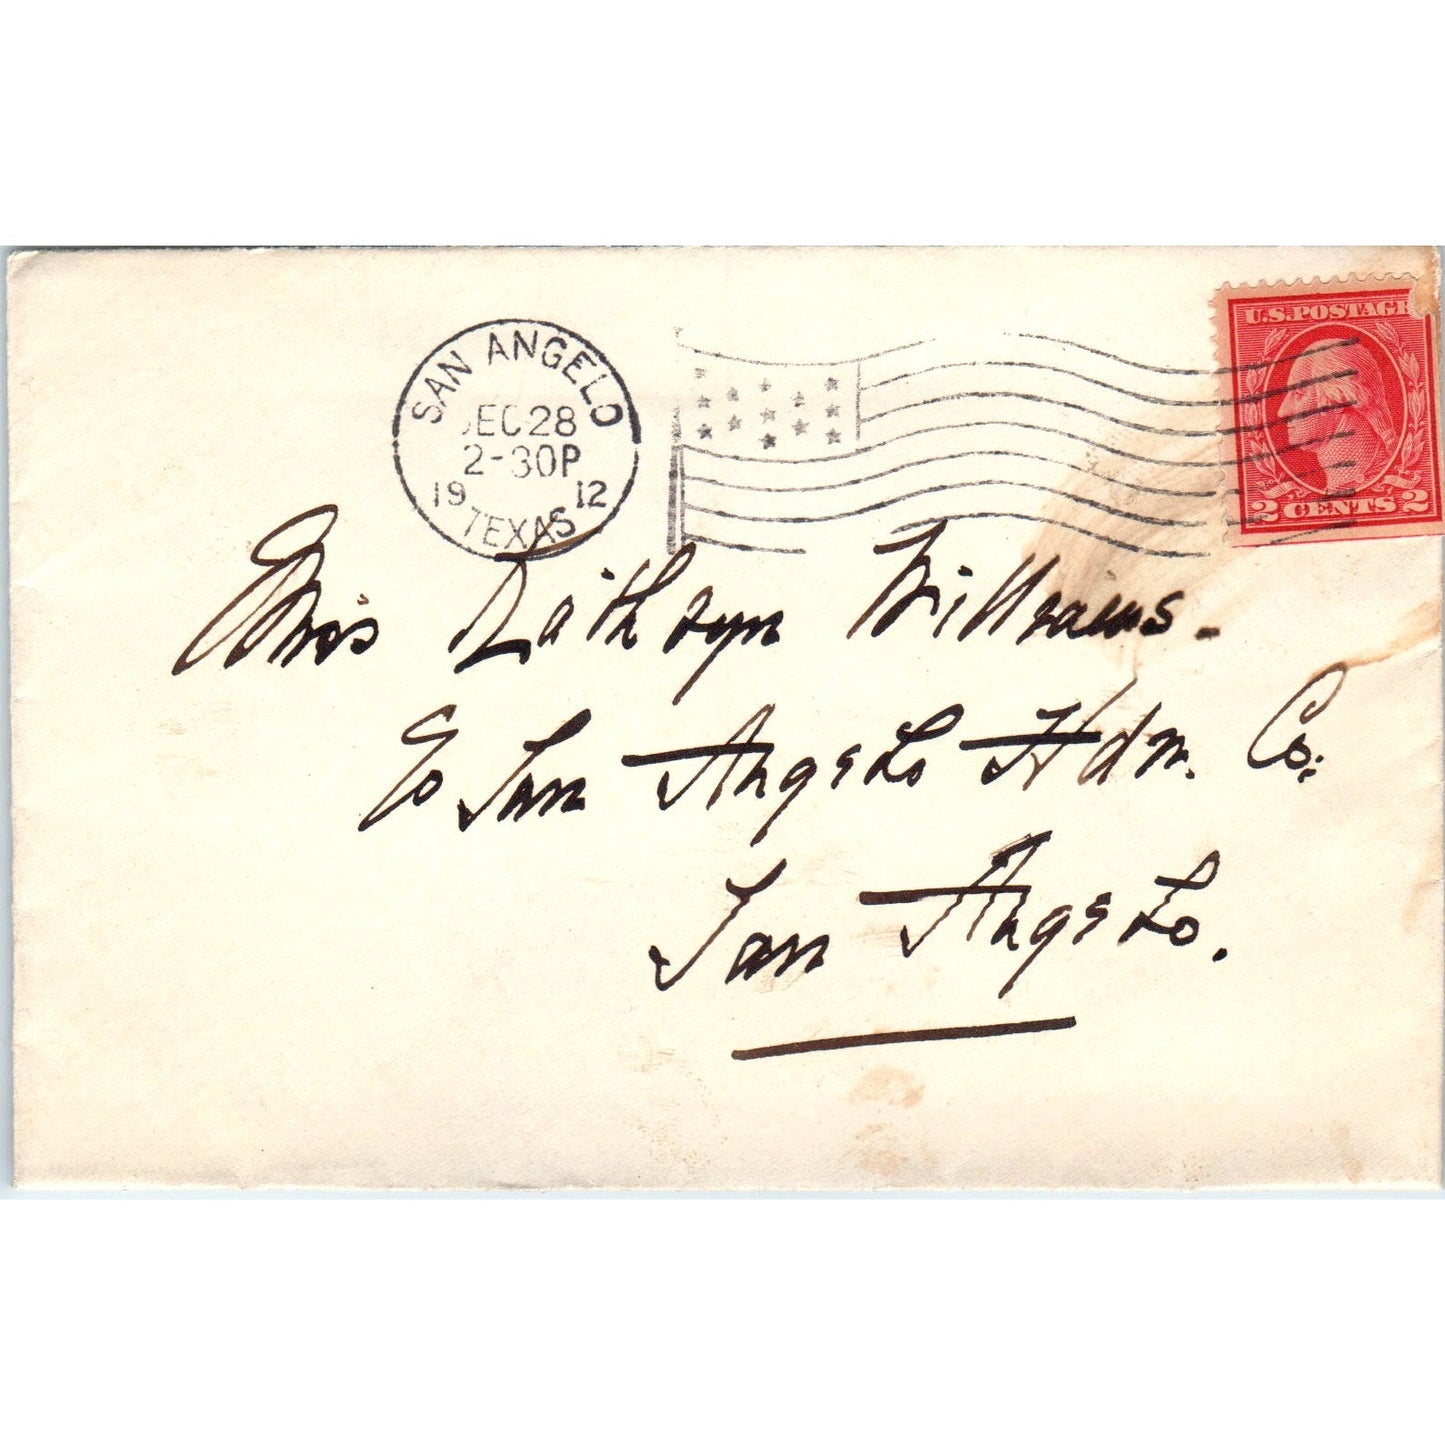 SAN ANGELO
DEC 28
2-30P
19 12
TEXAS
U.S. POSTAGE
2 CENTS 2
Miss Kathryn Williams.
c/o San Angelo Hdw. Co.
San Angelo.